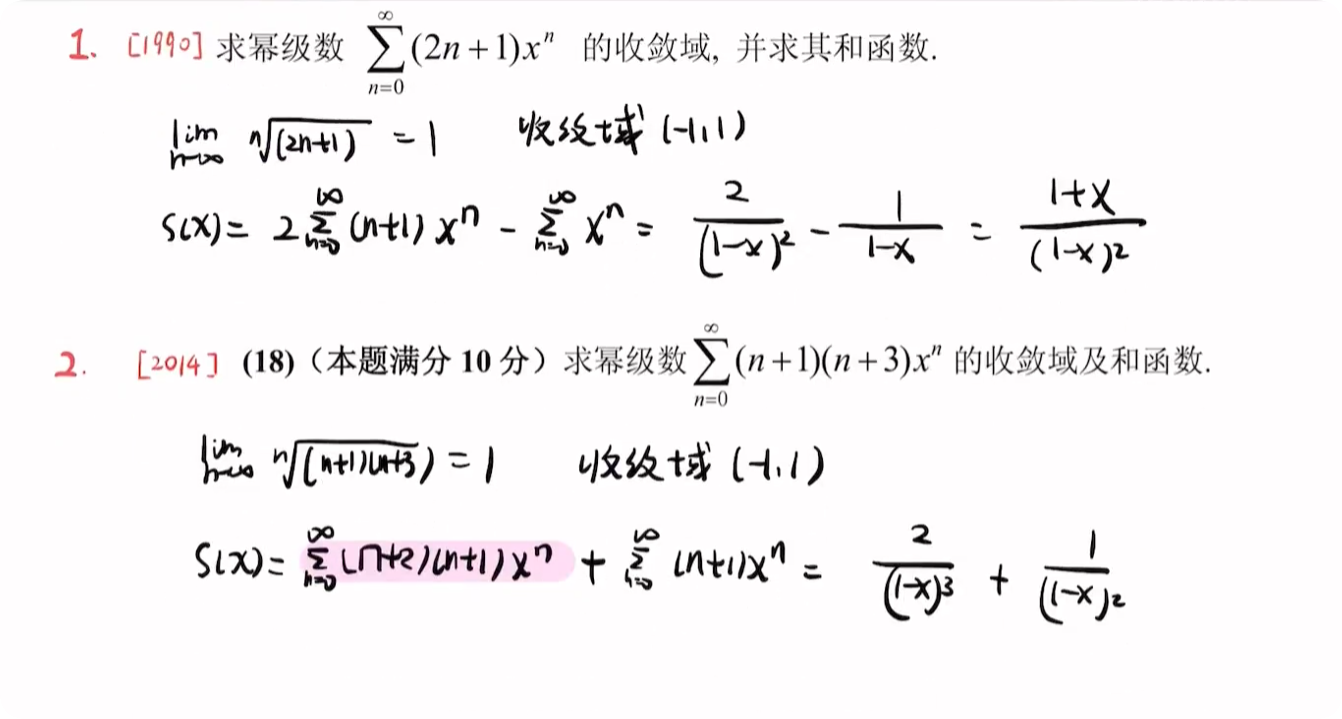 1. [1990] 求幂级数 $\sum_{n=0}^{\infty}(2n+1)x^n$ 的收敛域, 并求其和函数.
$\lim_{n\to\infty} \sqrt[n]{(2n+1)} = 1$ 收敛域 (-1,1)
$S(x) = 2\sum_{n=0}^{\infty}(n+1)x^n - \sum_{n=0}^{\infty}x^n = \frac{2}{(1-x)^2} - \frac{1}{1-x} = \frac{1+x}{(1-x)^2}$
2. [2014] (18)（本题满分 10 分）求幂级数 $\sum_{n=0}^{\infty}(n+1)(n+3)x^n$ 的收敛域及和函数.
$\lim_{n\to\infty} \sqrt[n]{(n+1)(n+3)} = 1$ 收敛域 (-1,1)
$S(x) = \sum_{n=0}^{\infty}(n+2)(n+1)x^n + \sum_{n=0}^{\infty}(n+1)x^n = \frac{2}{(1-x)^3} + \frac{1}{(1-x)^2}$